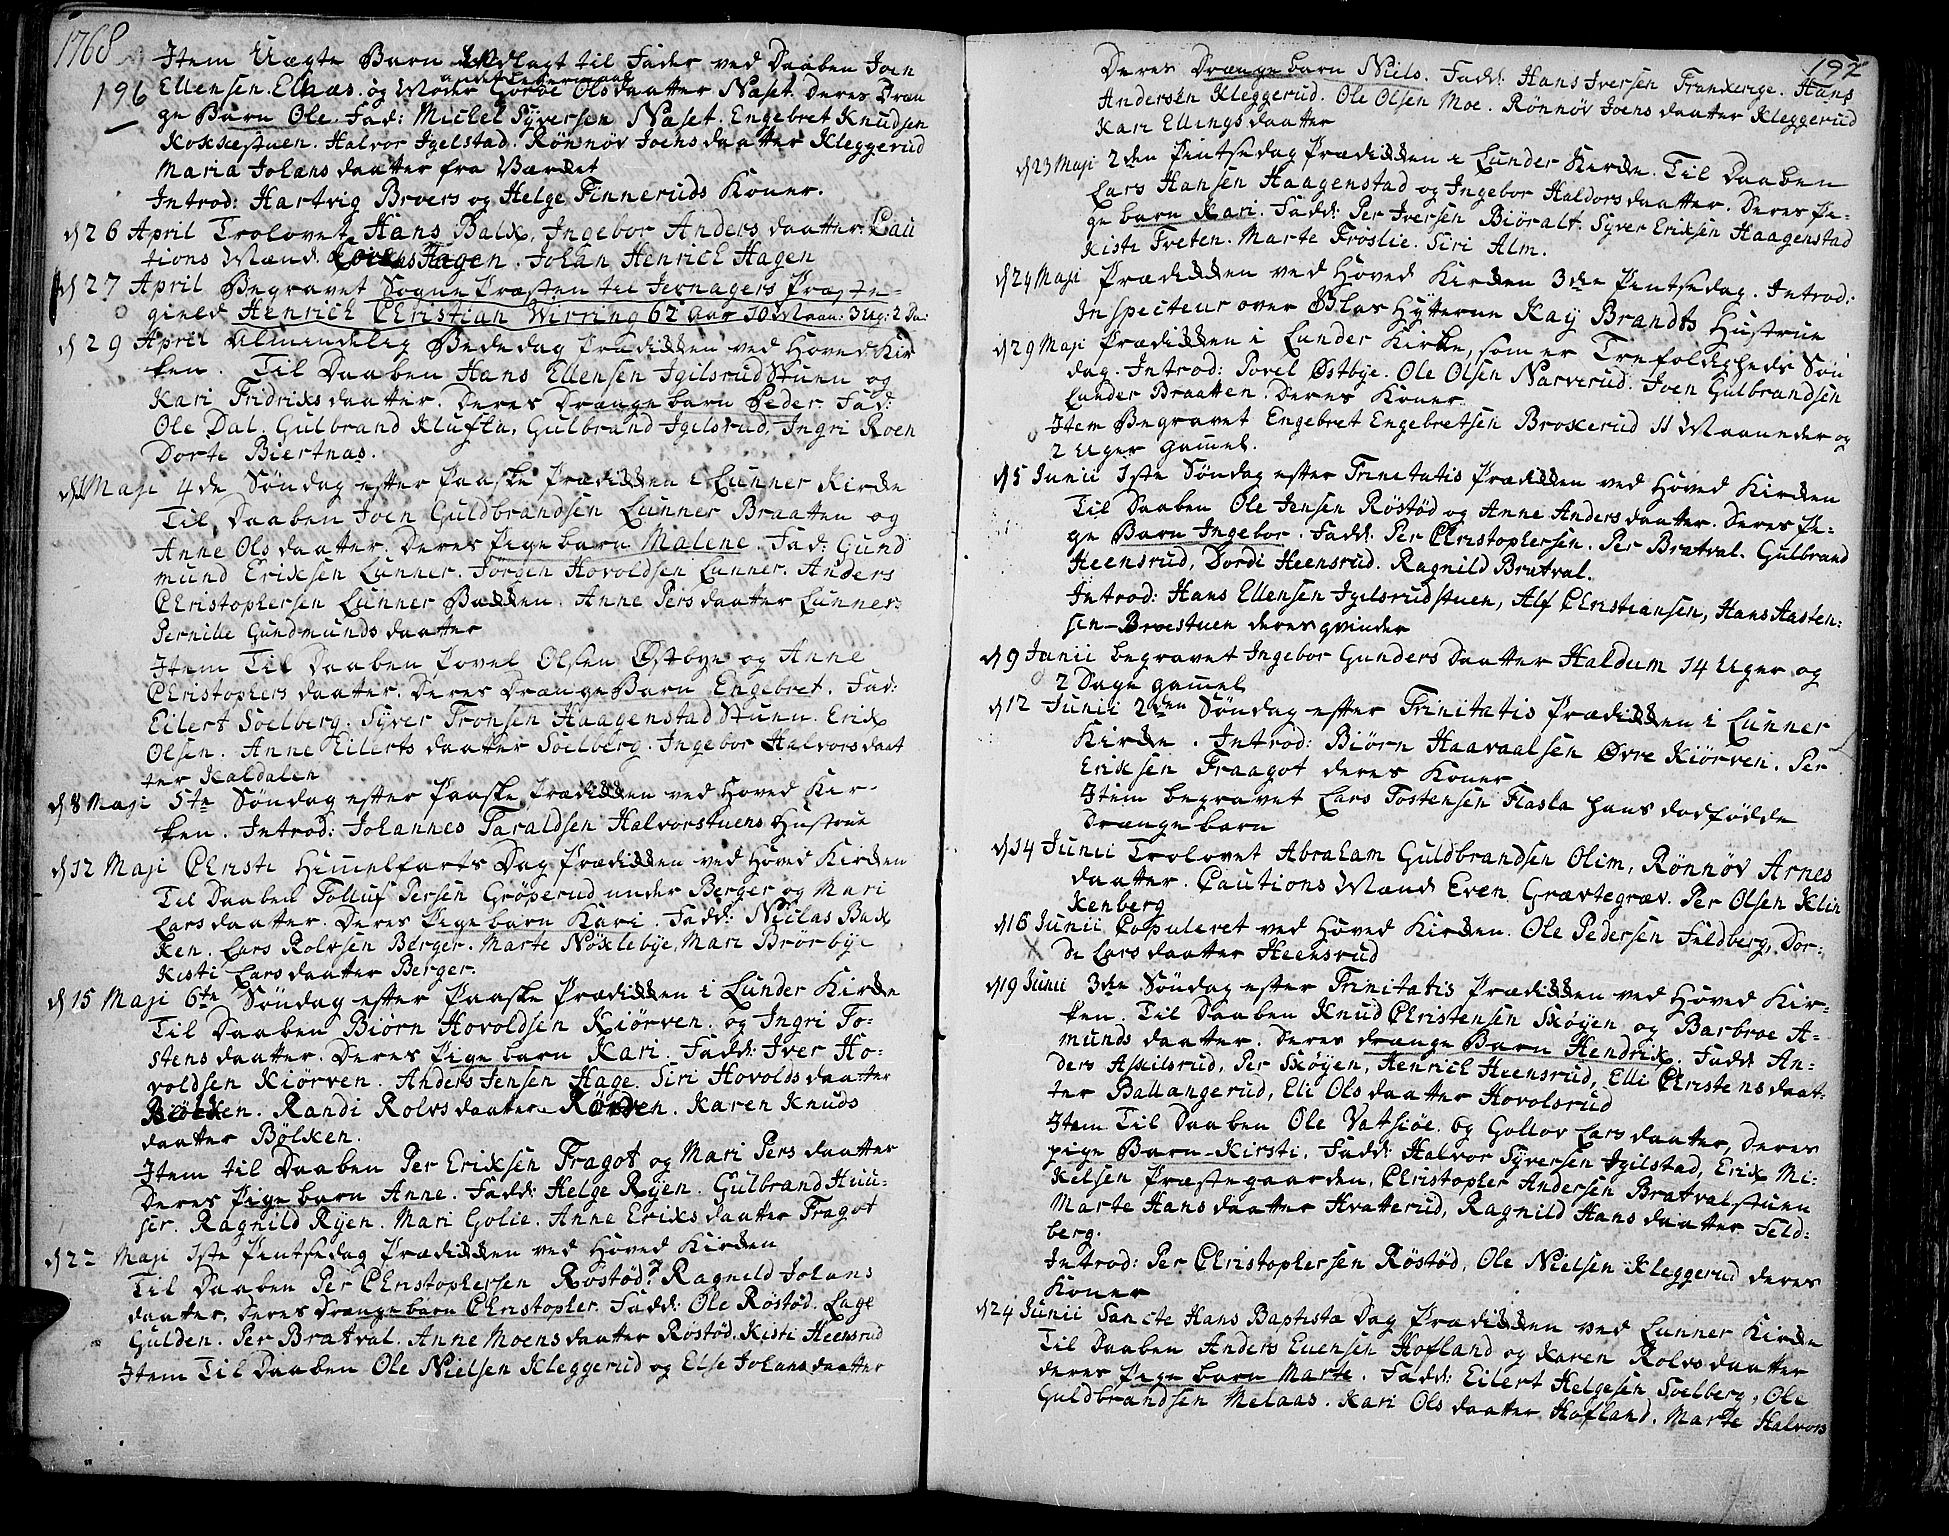 1768
Item Uægte Barn Udlagt til Fader ved Daaben Joen
196 Ellensen Elnæs. og Moder Goroe Olsdaatter Næset. Deres Dræn
andet Leiermaal
ge Barn Ole. Fad: Michel Syversen Næset. Engebret Knudsen
Kokkestuen. Halvor Igelstad. Rönnöv Joens daatter Kleggerud
Maria Johans daatter fra Værket
Introd: Hartvig Broers og Helge Finneruds Koner.
d 26 April Trolovet Hans Balk, Ingebor Anders daatter. Cau
tions Mænd Hagen. Johan Henrich Hagen
d 27 April Begravet Sogne Præsten til Jevnagers Præste-
gield Henrich Christian Wirring 62 aar 10 Maan: 3 Ug: 2 Da:
d 29 April Almindelig Bededag Prædikken ved Hoved Kir
ken. Til Daaben Hans Ellensen Igilsrud Stuen og
Kari Fridriks daatter. Deres Drænge barn Peder. Fad:
Ole Dal. Gulbrand Klufta, Gulbrand Igilsrud, Ingri Roen
Dorte Biertnæs.
d 1 Maji 4de Söndag efter Paaske Prædikken i Lunner Kirke
Til Daaben Joen Guldbrandsen Lunner Braaten og
Anne Ols daatter. Deres Pige barn Malene. Fad: Gund
mund Eriksen Lunner. Jörgen Hovoldsen Lunner. Anders
Christophersen Lunner Bakken. Anne Pers daatter Lunner.
Pernille Gundmunds daatter
Item Til Daaben Povel Olsen Østbye og Anne
Christophers daatter. Deres Drænge Barn Engebret. Fad:
Eilert Soelberg. Syver Tronsen Haagenstad Stuen. Erik
Olsen. Anne Eilerts daatter Soelberg. Ingebor Halvors daat
ter Kaldalen
d 8 Maji 5te Söndag efter Paaske Prædikken ved Hoved Kir-
ken. Introd: Johannes Taraldsen Halvorstuens Hustrue
d 12 Maji Christi Himmelfarts Dag Prædikken ved Hoved Kirken
Til Daaben Tolluf Persen Gröperud under Berger og Mari
Lars daatter. Deres Pige barn Kari. Fadd: Niclas Bak
ken. Lars Rolvsen Berger. Marte Nöklebye, Mari Brörbye
Kisti Lars daatter Berger.
d 15 Maji 6te Söndag efter Paaske Prædikken i Lunder Kirke
Til Daaben Biörn Hovoldsen Kiörven. og Ingri To-
stens daatter. Deres Pige barn Kari. Fadd: Iver Ho-
voldsen Kiörven. Anders Jensen Hage. Siri Hovolds daatter
Bölken. Randi Rolvs daatter Karen Knuds
daatter Bölken.
Item til Daaben Per Eriksen Fragot og Mari Pers daatter
Deres Pige barn Anne. Fadd: Helge Ryen. Gulbrand Huu-
ser. Ragnild Ryen. Mari Golie. Anne Eriks daatter Fragot
d 22 Maji 1ste Pintsedag Prædikken ved Hoved Kirken
Til Daaben Per Christophersen Röstöd. Ragnild Johans
daatter, Deres Drænge barn Christopher. Fadd: Ole Röstöd. Lage
Gulden. Per Bratval. Anne Moens daatter Röstöd. Kisti Heensrud
Item Til Daaben Ole Nielsen Kleggerud og Else Johans daatter
192
Deres Drænge barn Niels. Fadd: Hans Iversen Hans
Andersen Kleggerud. Ole Olsen Moe. Rönnöv Joens daatter Kleggerud
Kari Ellings daatter
d 23 Maji 2den Pintsedag Prædikken i Lunder Kirke. Til Daaben
Lars Hansen Haagenstad og Ingebor Haldors daatter. Deres Pi-
ge barn Kari. Fadd: Per Iversen Biöralt. Syver Eriksen Haagenstad
Kisti Tveten. Marte Fröslie. Siri Alm.
d 24 Maji Prædikken ved Hoved Kirken 3die Pintsedag. Introd:
Inspecteur over Glas Hytterne Kay Brandts Hustrue
d 29 Maji Prædikken i Lunder Kirke, som er Trefoldigheds Sön
dag. Introd: Povel Østbye. Ole Olsen Narverud. Joen Gulbrandsen
Lunder Braatten. Deres Koner.
Item Begravet Engebret Engebretsen Brokerud 11 Maaneder og
2 Uger gammel.
d 5 Junii 1ste Söndag efter Trinitatis Prædikken ved Hoved Kirken
Til Daaben Ole Jensen Röstöd og Anne Anders daatter. Deres Pi-
ge Barn Ingebor. Fadd: Per Christophersen. Per Bratval. Gulbrand
Heensrud, Dordi Heensrud. Ragnild Bratval.
Introd: Hans Ellensen Igilsrudstuen, Alf Christiansen, Hans Hasten-
sen Broestuen deres qvinder
d 9 Junii begravet Ingebor Gunders Daatter Haldum 14 Uger og
2 Dage gammel
d 12 Junii 2den Söndag efter Trinitatis Prædikken i Lunner
Kirke. Introd: Biörn Haavaalsen Øvre Kiörven. Per
Eriksen Fraagot deres Koner.
Item begravet Lars Tostensen Flasla hans dödfödde
Drænge barn
d 14 Junii Trolovet Abraham Guldbrandsen Olim, Rönnöv Arnes
daatter. Cautions Mænd Even Grævtegræv. Per Olsen Klin
kenberg
d 16 Junii Copuleret ved Hoved Kirken. Ole Pedersen Feldberg, Dor-
X de Lars daatter Heensrud
d 19 Junii 3die Söndag efter Trinitatis Prædikken ved Hoved Kir-
ken. Til Daaben Knud Christensen Sköyen og Barbroe A-
munds daatter. Deres drænge Barn Hendrik. Fadd: An-
ders Askilsrud, Per Sköyen, Henrich Heensrud, Elli Christens daat-
ter Ballangerud, Eli Ols daatter Hovolsrud
Item Til Daaben Ole Vatsiöe. og Gollov Lars daatter, Deres
pige Barn Kirsti. Fadd: Halvor Syversen Igilstad, Erik Mi-
kelsen Præstegaarden, Christopher Andersen Bratvalstuen
Marte Hans daatter Hvatterud, Ragnild Hans daatter Feld-
berg.
Introd: Per Christophersen Röstöd, Ole Nielsen Kleggerud deres
Koner
d 24 Junii Sancte Hans Baptistæ Dag Prædikken ved Lunner Kirke
Til Daaben Anders Evensen Hofland og Karen Rolvs daatter
deres Pige barn Marte. Fadd: Eilert Helgesen Soelberg, Ole
Guldbrandsen Melaas. Kari Ols daatter Hofland. Marte Halvors